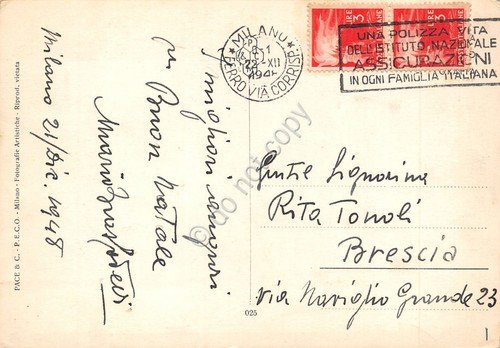 Milano 21/Dic. 1948
i migliori auguri
per Buon Natale
PACE & C. - P.E.C.O. - Milano - Fotografie Artistiche - Riprod. vietata
025
MILANO
22 XII
FERROVIA CORRISP.
LIRE 3
LIRE 3
UNA POLIZZA VITA
DELL'ISTITUTO NAZIONALE
ASSICURAZIONI
IN OGNI FAMIGLIA ITALIANA
Gent. Signorina
Rita Tonoli
Brescia
via Naviglio Grande 23
1
do not copy